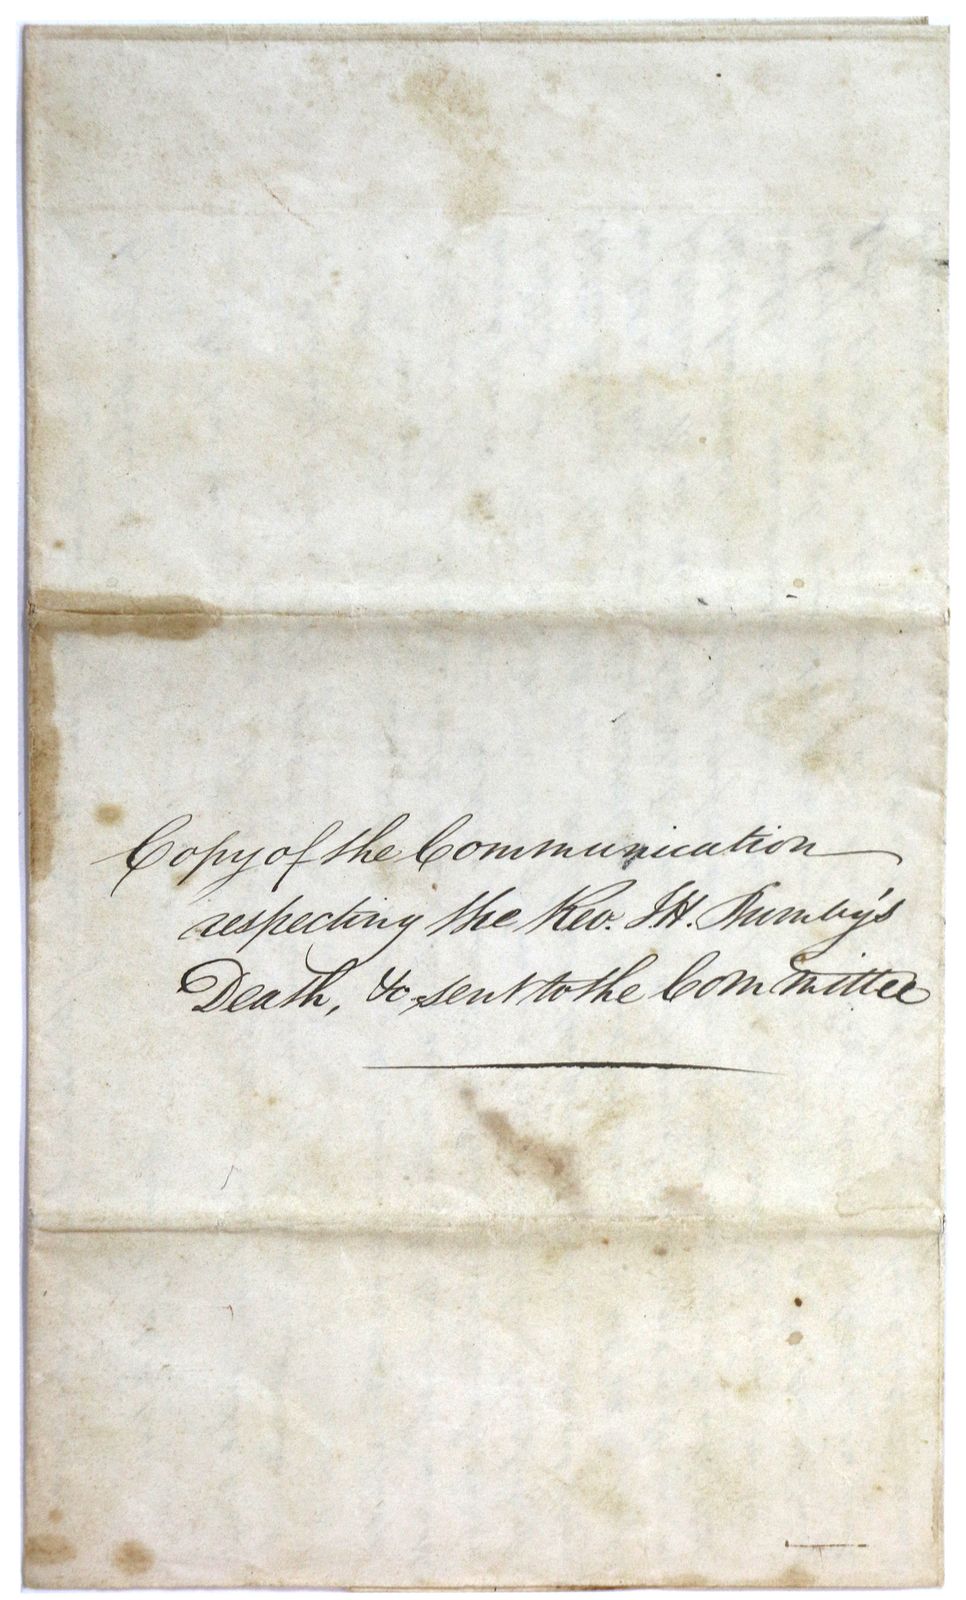 Copy of the Communication
respecting the Rev. J.H. Bumby's
Death, &c sent to the Committee